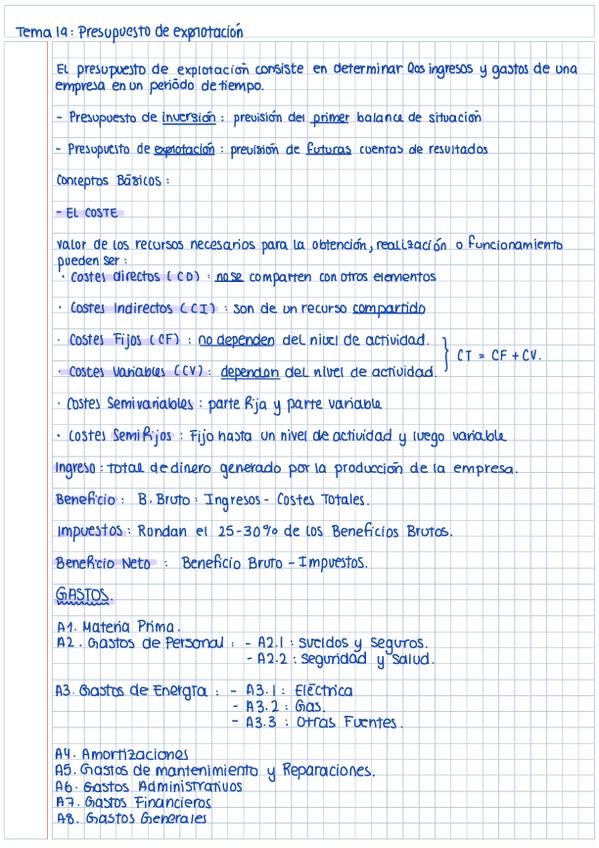 Tema 19: Presupuesto de explotación
El presupuesto de explotación consiste en determinar los ingresos y gastos de una
empresa en un período de tiempo.
- Presupuesto de inversión : previsión del primer balance de situación
- Presupuesto de explotación : previsión de futuras cuentas de resultados
Conceptos Básicos :
- EL COSTE
Valor de los recursos necesarios para la obtención, realización o funcionamiento
pueden ser :
· Costes directos (CD) : no se comparten con otros elementos
· Costes Indirectos (CI) : son de un recurso compartido
· Costes Fijos (CF) : no dependen del nivel de actividad.
· Costes Variables (CV) : dependen del nivel de actividad.
} CT = CF + CV.
· Costes Semivariables : parte fija y parte variable
· Costes Semifijos : Fijo hasta un nivel de actividad y luego variable
Ingreso : total de dinero generado por la producción de la empresa.
Beneficio : B. Bruto : Ingresos - Costes Totales.
Impuestos : Rondan el 25-30% de los Beneficios Brutos.
Beneficio Neto : Beneficio Bruto - Impuestos.
GASTOS.
A1. Materia Prima.
A2. Gastos de Personal : - A2.1 : sueldos y seguros.
- A2.2 : seguridad y salud.
A3. Gastos de Energía : - A3.1 : Eléctrica
- A3.2 : Gas.
- A3.3 : Otras Fuentes.
A4. Amortizaciones
A5. Gastos de mantenimiento y Reparaciones.
A6. Gastos Administrativos
A7. Gastos Financieros
A8. Gastos Generales